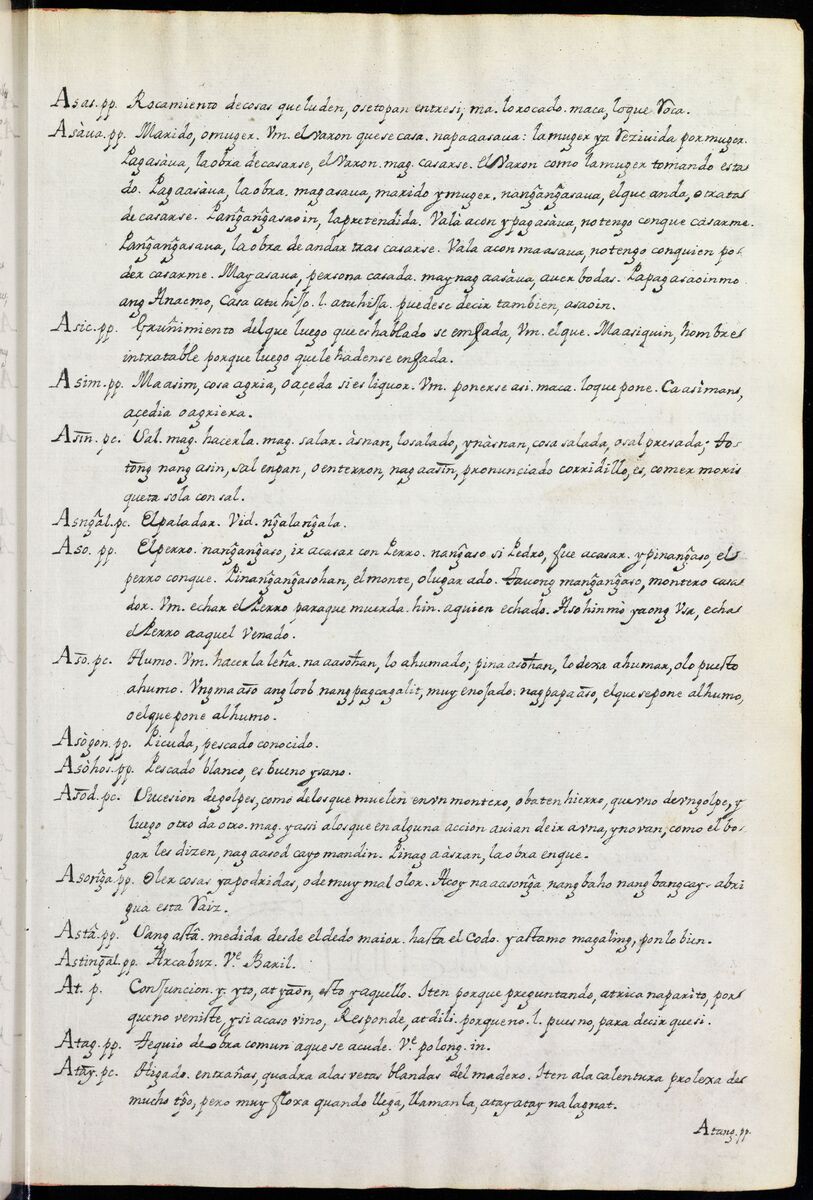 Asas. pp. Rocamiento de cosas que luden, o se topan entre si, ma. lo rocado. maca, lo que Roca.
Asàua. pp. Marido, o muger. Vm. el varon que se casa. napaaasaua: la muger ya rezivida por muger.
Pagasàua, la obra de casarse, el Varon. mag. casarse. el Varon como la muger tomando esta
do. Pagaasàua, la obra. magasaua, marido y muger, nang̃ang̃asaua, el que anda, o trata
de casarse. Pang̃ang̃asaoin, la pretendida. Valà acon ypagasàua, no tengo con que casarme.
Pang̃ang̃asaua, la obra de andar tras casarse. Vala acon maasaua, no tengo con quien po
der casarme. May asaua, persona casada. may nagaasàua, auer bodas. Papagasaoin mo
ang Anac mo, Casa a tu hijo. l. a tu hija. puedese decir tambien, asaoin.
Asic. pp. Gruñimiento del que luego que es hablado se enfada, Vm. el que. Maasiquin, hombre
intratable porque luego que le hadense enfada.
Asim. pp. Maasim, cosa agria, o açeda si es liquor. Vm. ponerse asi. maca. lo que pone. Caasiman,
açedia o agriera.
Asin. pc. Sal. mag. hacerla. mag. salar. àsnan, lo salado, ynàsnan, cosa salada, o sal presada; to
tong nang asin, sal en pan, o enterron, nagaasin, pronunciado corridillo, es, comer moris
queta sola con sal.
Asng̃al. pc. El paladar. Vid. ng̃alang̃ala.
Aso. pp. El perro. nang̃ang̃aso, ir a casar con Perro. nang̃aso si Pedro, fue a casar. ypinang̃aso, el
perro con que. Pinang̃ang̃asohan, el monte, o lugar ado. tauong mang̃ang̃aso, montero casa
dor. Vm. echar el Perro para que muerda. hin. a quien echado. Asohin mo yaong Vsa, echa
el Perro a aquel venado.
Aso. pc. Humo. Vm. hacerla leña. na aasohan, lo ahumado; pina asohan, lo dexa ahumar, o lo puesto
a humo. Vngmaaso ang loob nang pagcagalit, muy enojado: nagpapaaso, el que se pone al humo,
o el que pone al humo.
Asògon. pp. Picuda, pescado conocido.
Asòhos. pp. Pescado blanco, es bueno y sano.
Asod. pc. Sucesion de golpes, como de los que muelen en vn montero, o baten hierro, que vno de vn golpe, y
luego otro da otro. mag. y assi a los que en alguna accion auian de ir a vna, y no van, como el bo
gar les dizen, nagaasod cayo mandin. Pinagaàsran, la obra en que.
Asong̃a. pp. Oler cosas ya podridas, o de muy mal olor. Acoy naaasong̃a nang baho nang bangcay. abri
gua esta Raiz.
Asta. pp. Sang asta. medida desde el dedo maior. hasta el Codo. yastamo magaling, ponlo bien.
Astingal. pp. Arcabuz. Vᵉ. Baril.
At. p. Conjuncion. y. yto, at yaon, esto y aquello. Iten porque preguntando, at rica naparito, por
que no veniste, y si acaso vino, Responde, at dili. porque no. l. pues no, para decir que si.
Atag. pp. Tequio de obra comun a que se acude. Vᵉ. polong. in.
Atay. pc. Higado. entrañas, quadra a las vetas blandas del madero. Iten a la calentura prolexa de
mucho tp̃o, pero muy floxa quando llega, llamanla, atayatay na lagnat.
Atang. pp.